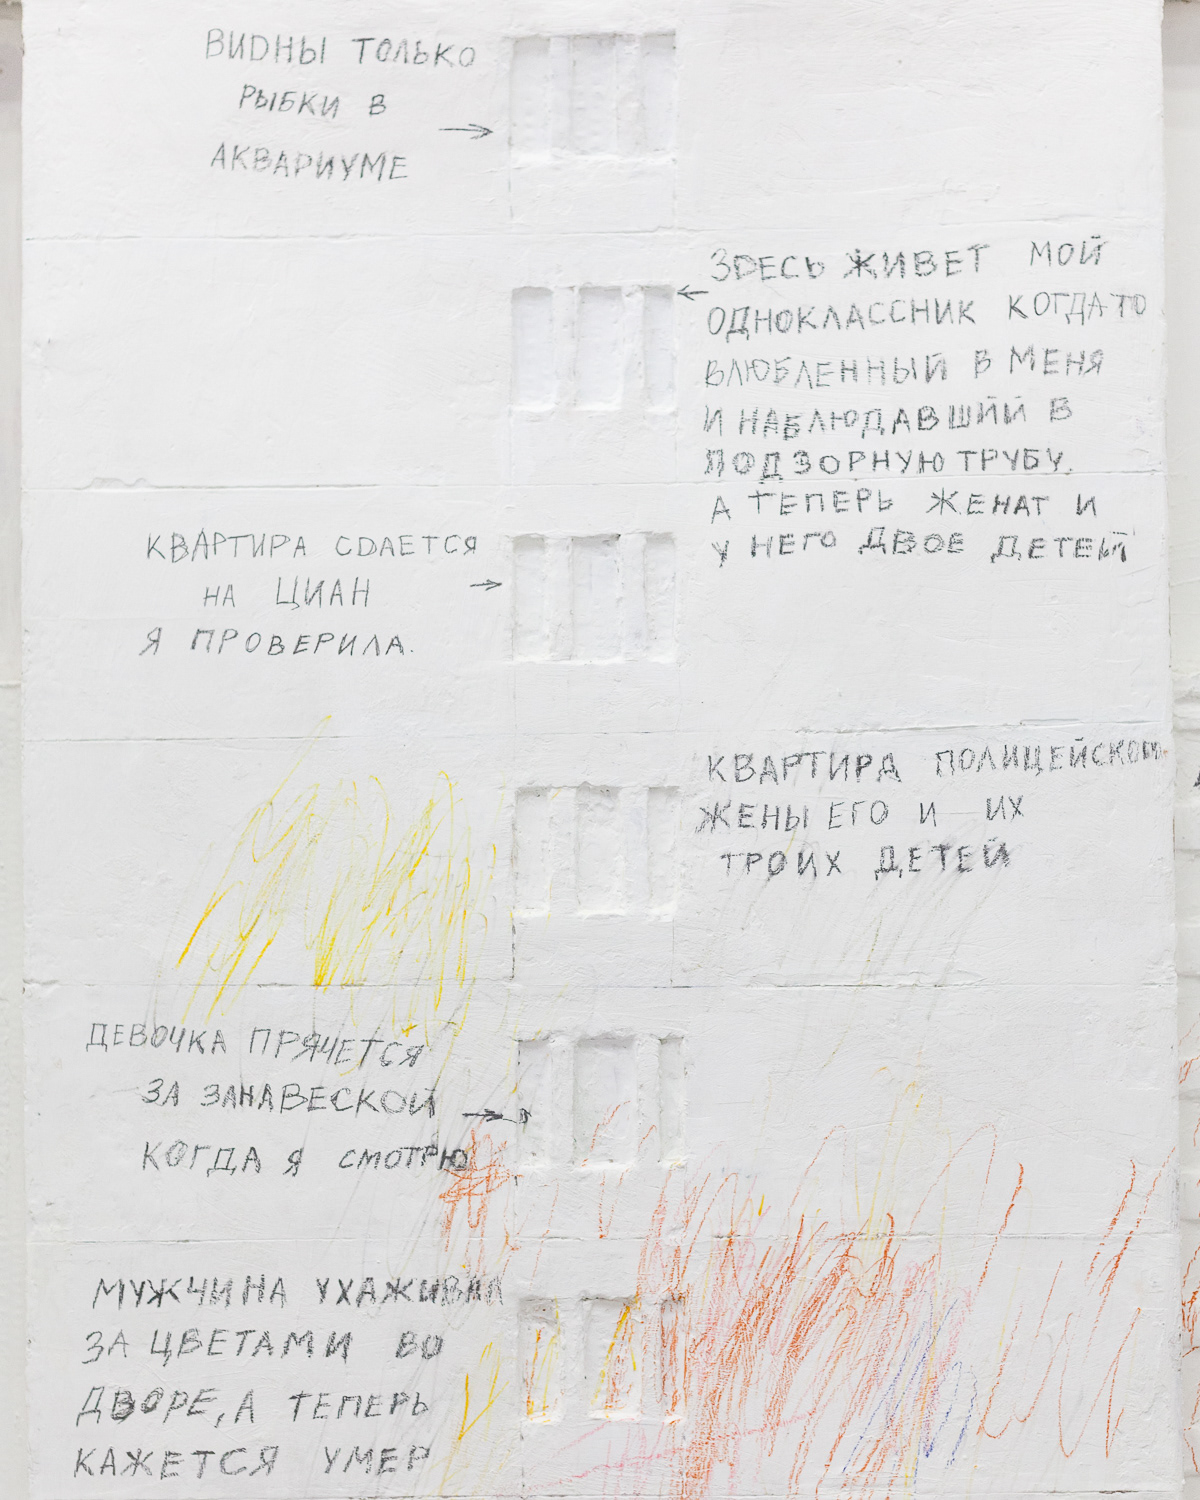 ВИДНЫ ТОЛЬКО
РЫБКИ В
АКВАРИУМЕ
ЗДЕСЬ ЖИВЕТ МОЙ
ОДНОКЛАССНИК КОГДА ТО
ВЛЮБЛЕННЫЙ В МЕНЯ
И НАБЛЮДАВШИЙ В
ПОДЗОРНУЮ ТРУБУ.
А ТЕПЕРЬ ЖЕНАТ И
У НЕГО ДВОЕ ДЕТЕЙ
КВАРТИРА СДАЕТСЯ
НА ЦИАН
Я ПРОВЕРИЛА.
КВАРТИРА ПОЛИЦЕЙСКОГО
ЖЕНЫ ЕГО И ИХ
ТРОИХ ДЕТЕЙ
ДЕВОЧКА ПРЯЧЕТСЯ
ЗА ЗАНАВЕСКОЙ
КОГДА Я СМОТРЮ
МУЖЧИНА УХАЖИВАЛ
ЗА ЦВЕТАМИ ВО
ДВОРЕ, А ТЕПЕРЬ
КАЖЕТСЯ УМЕР